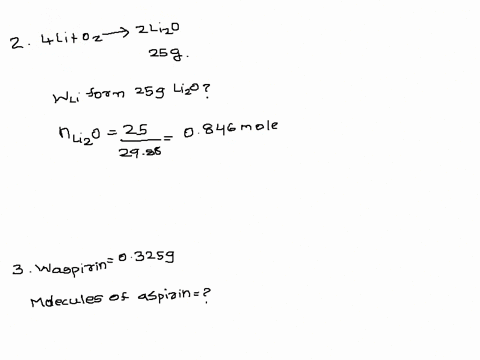 2. 4Li+O2 → 2Li2O
25g.
WLi form 25g Li2O?
nLi2O = 25/29.88 = 0.846 mole
3. Waspirin = 0.325g
Molecules of aspirin = ?